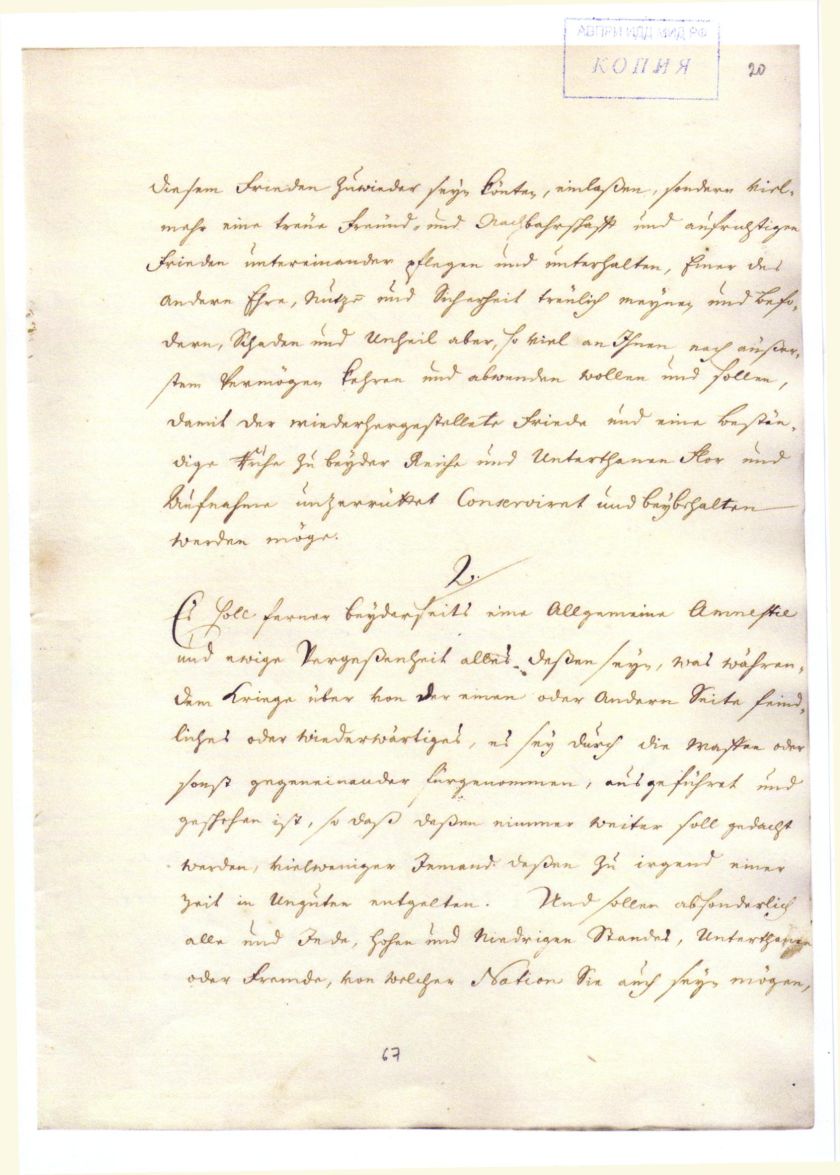 АВПРИ ИДД МИД РФ
КОПИЯ
20
diesem Frieden zuwieder seyn könten, einlaßen, sondern viel-
mehr eine treue Freund- und Nachbahrschafft und aufrichtigen
Frieden untereinander pflegen und unterhalten, Einer des
andern Ehre, Nutzen und Sicherheit treulich meynen und befo-
dern, Schaden und Unheil aber, so viel an Ihnen nach äußer-
stem Vermögen kehren und abwenden wollen und sollen,
damit der wiederhergestellete Friede und eine bestän-
dige Ruhe zu beyder Reiche und Unterthanen Flor und
Aufnahme unzerrüttet Conserviret und beybehalten
werden möge.
2.
Es soll ferner beyderseits eine Allgemeine Amnestie
und ewige Vergeßenheit alles deßen seyn, was währen-
dem Kriege über von der einen oder Andern Seite feind-
liches oder wiederwärtiges, es sey durch die Waffen oder
sonst gegeneinander fürgenommen, ausgeführet und
geschehen ist, so daß deßen nimmer weiter soll gedacht
werden, vielweniger Jemand deßen zu irgend einer
Zeit in Unguten entgelten. Und sollen absonderlich
alle und Jede, hohen und Niedrigen Standes, Unterthanen
oder Fremde, von welcher Nation Sie auch seyn mögen,
67